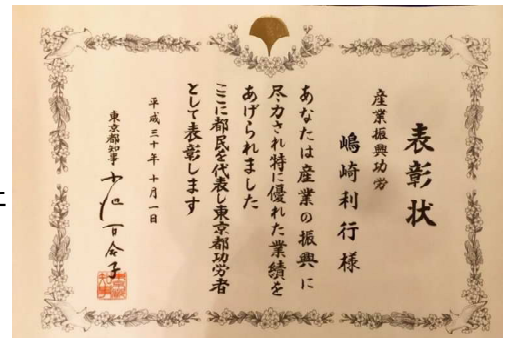 表彰状
産業振興功労
嶋崎利行様
あなたは産業の振興に
尽力され特に優れた業績を
あげられました
ここに都民を代表し東京都功労者
として表彰します
平成三十年十月一日
東京都知事 小池百合子